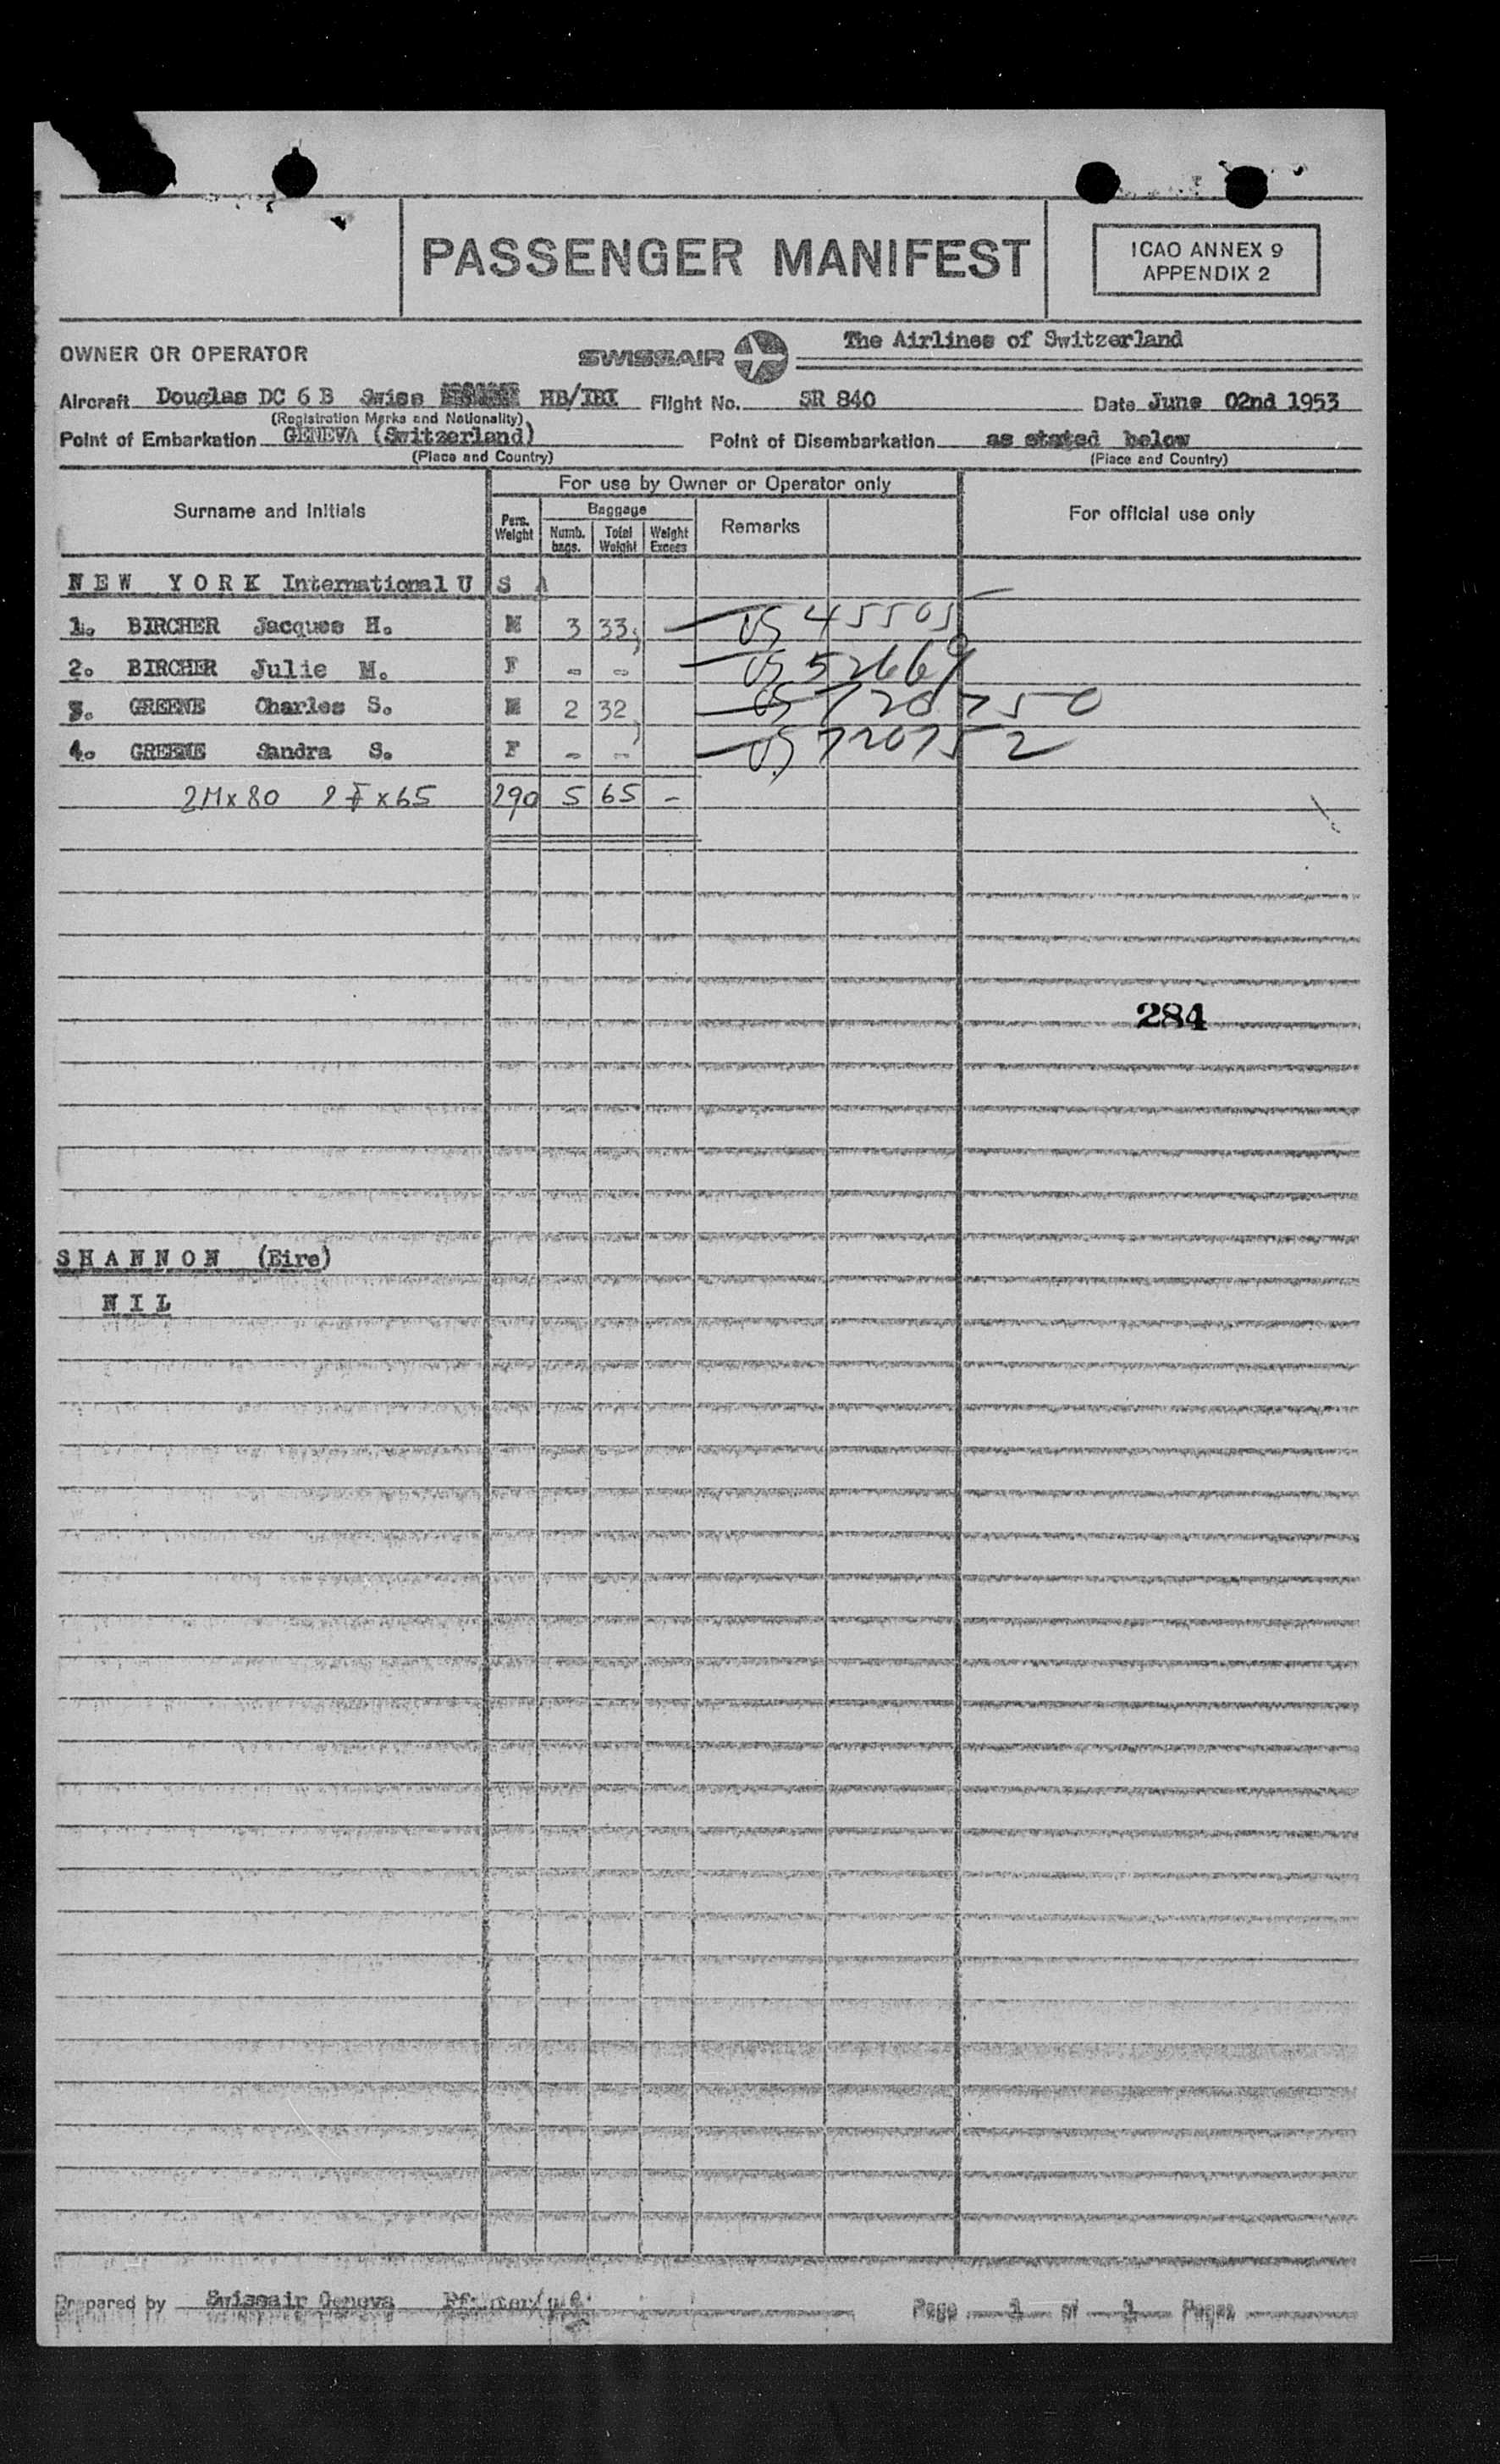 PASSENGER MANIFEST
ICAO ANNEX 9
APPENDIX 2
OWNER OR OPERATOR SWISSAIR The Airlines of Switzerland
Aircraft Douglas DC 6 B Swiss HB/IBI Flight No. SR 840 Date June 02nd 1953
(Registration Marks and Nationality)
Point of Embarkation GENEVA (Switzerland) Point of Disembarkation as stated below
(Place and Country) (Place and Country)
For use by Owner or Operator only
Surname and Initials Pers. Weight Baggage Numb. bags. Total Weight Weight Excess Remarks For official use only
NEW YORK International U S A
1. BIRCHER Jacques H. M 3 33 US 45505
2. BIRCHER Julie M. F - - US 52669
3. GREENE Charles S. M 2 32 US 720750
4. GREENE Sandra S. F - - US 720752
2M x 80 2F x 65 290 5 65 -
284
SHANNON (Eire)
NIL
Prepared by Swissair Geneva
Page 1 of 1 Pages